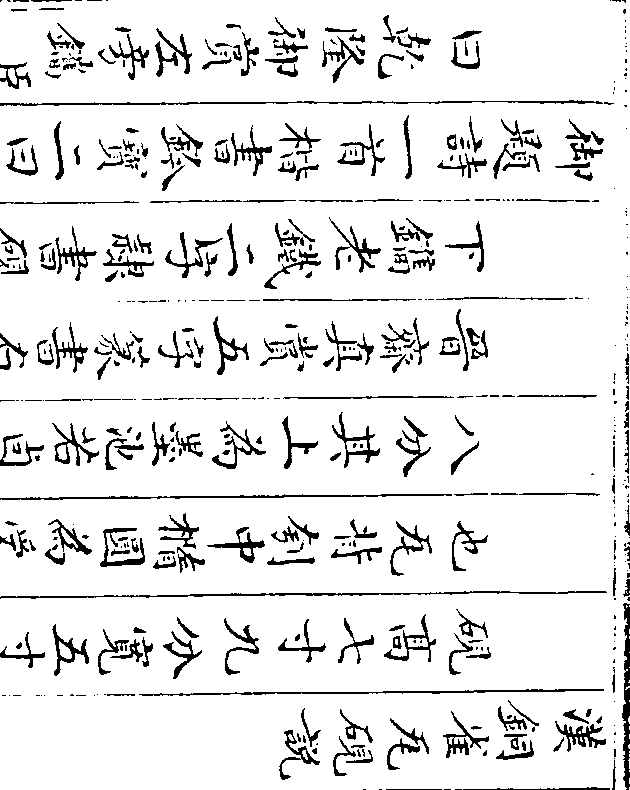 漢銅雀瓦硯說
硯高七寸九分寬五寸
也瓦背刳中橢圓為
八分其上為墨池若
晉齋真賞五字篆書右
下鐫老鐵二字隸書硯
御題詩一首楷書鈐寶二曰
曰乾隆御賞左旁鐫